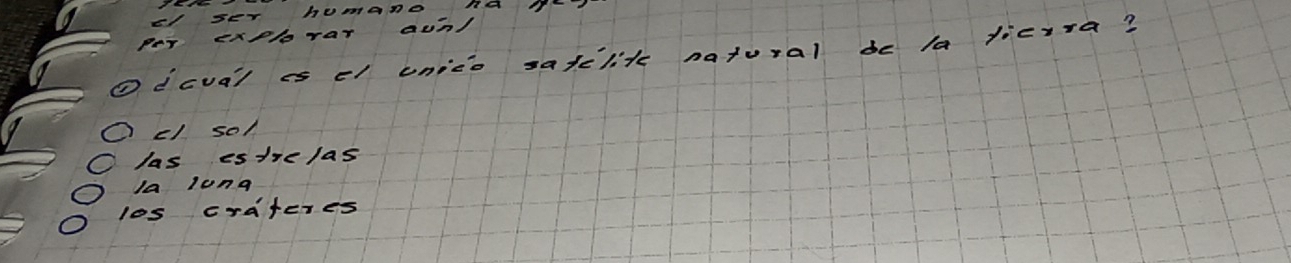 el ser humano ha
por explorar aún
① ¿cuál es el unico satélite natural de la tierra?
○ el sol
○ las estrelas
○ la luna
○ los cráteres